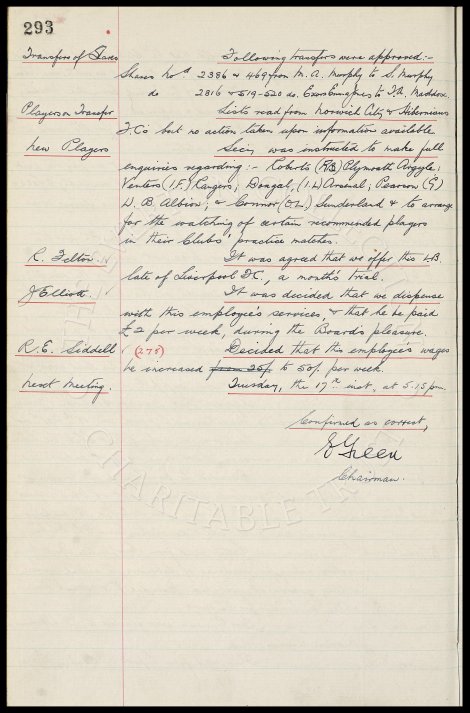 293
Transfers of Shares Following transfers were approved:-
Shares Nos 2386 & 469 from M. A. Murphy to S. Murphy
do 2816 & 519-520 do. to Maddox
Players on Transfer Lists read from Norwich City & Hibernians
F.C's but no action taken upon information available
New Players Secy. was instructed to make full
enquiries regarding:- Roberts (R/B) Plymouth Argyle;
Venters (I.F.) Rangers; Dougal, (I.L) Arsenal; Pearson (G)
W. B. Albion; & Connor (O.L.) Sunderland & to arrange
for the watching of certain recommended players
in their Clubs' practice matches.
R. Felton. It was agreed that we offer this L B
late of Liverpool F.C., a month's trial.
J Elliott. It was decided that we dispense
with this employee's services, & that he be paid
£2 per week, during the Board's pleasure.
R. E. Liddell (275) Decided that this employee's wages
be increased from 35/- to 50/- per week.
Next Meeting. Tuesday, the 17th inst, at 5.15 pm.
Confirmed as correct,
E Green
Chairman.
CHARITABLE TRUST